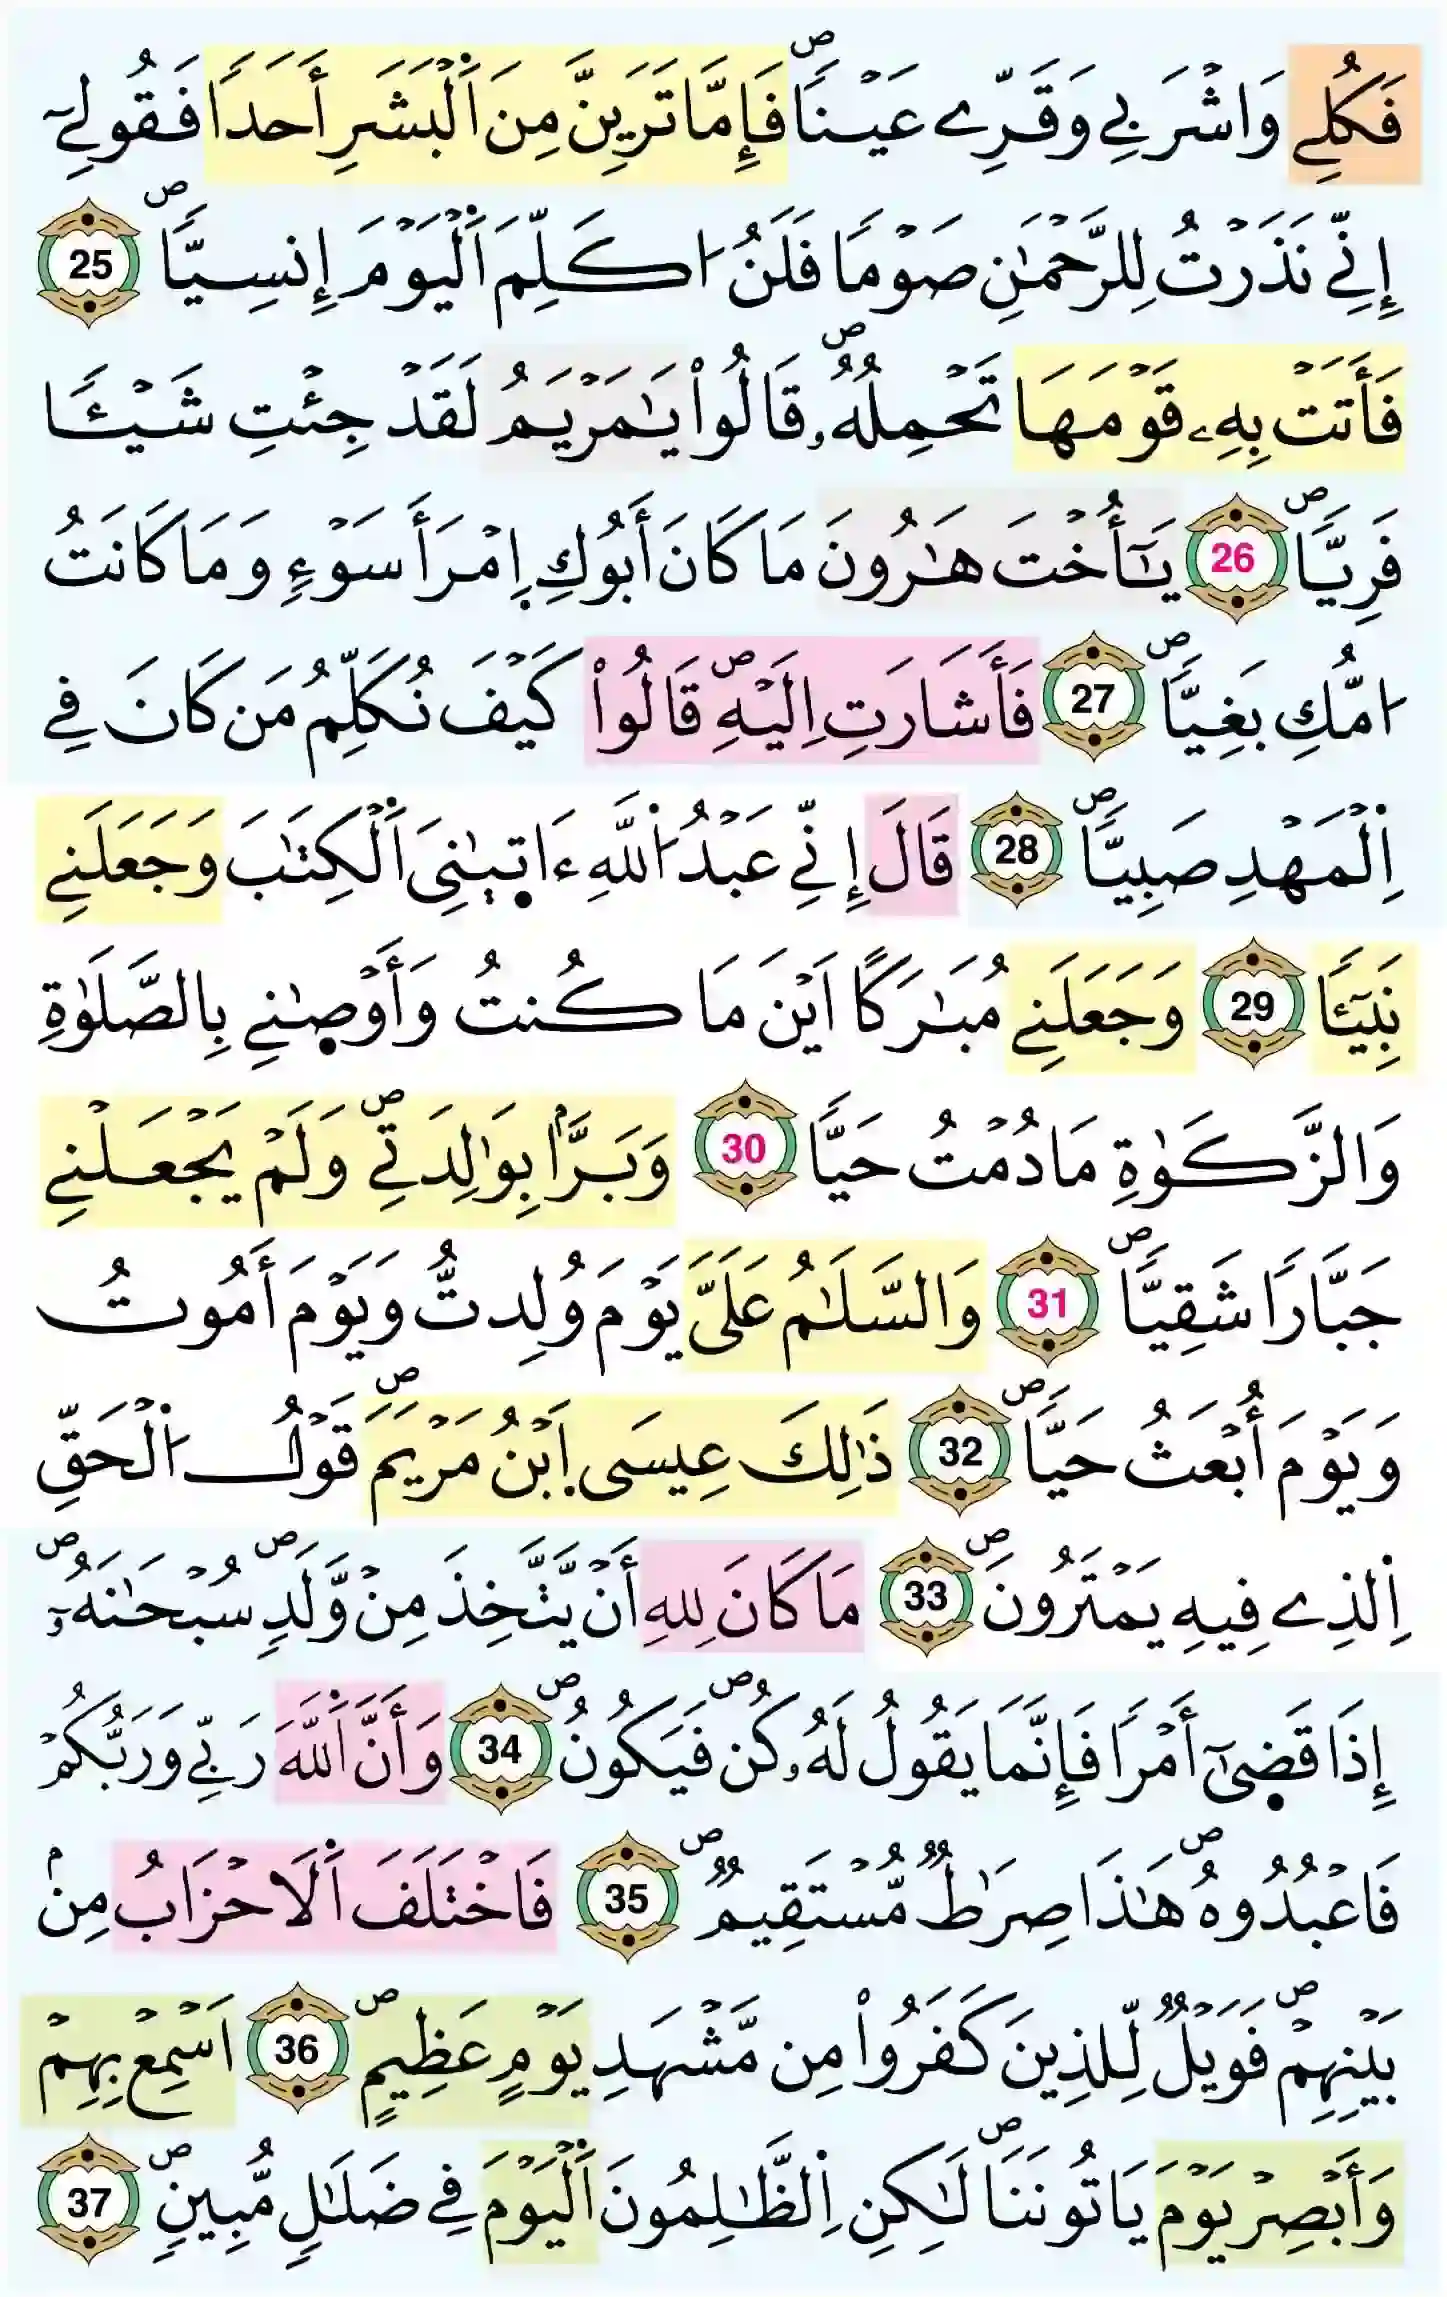 فَكُلِے وَاشْرَبِے وَقَرِّے عَيْناٗۖ فَإِمَّا تَرَيِنَّ مِنَ اَ۬لْبَشَرِ أَحَداٗ فَقُولِےٓ
إِنِّے نَذَرْتُ لِلرَّحْمَٰنِ صَوْماٗ فَلَنُ ا۟كَلِّمَ اَ۬لْيَوْمَ إِنسِيّاٗۖ 25
فَأَتَتْ بِهِۦ قَوْمَهَا تَحْمِلُهُۥۖ قَالُواْ يَٰمَرْيَمُ لَقَدْ جِئْتِ شَيْـٔاٗ
فَرِيّاٗۖ 26 يَٰٓأُخْتَ هَٰرُونَ مَا كَانَ أَبُوكِ اِ۪مْرَأَ سَوْءٖ وَمَا كَانَتُ
ا۟مُّكِ بَغِيّاٗۖ 27 فَأَشَارَتِ اِلَيْهِۖ قَالُواْ كَيْفَ نُكَلِّمُ مَن كَانَ فِے
اِ۬لْمَهْدِ صَبِيّاٗۖ 28 قَالَ إِنِّے عَبْدُ اُ۬للَّهِ ءَات۪يٰنِيَ اَ۬لْكِتَٰبَ وَجَعَلَنِے
نَبِيٓـٔاٗ 29 وَجَعَلَنِے مُبَٰرَكاً اَيْنَ مَا كُنتُ وَأَوْصٰ۪نِے بِالصَّلَوٰةِ
وَالزَّكَوٰةِ مَا دُمْتُ حَيّاٗ 30 وَبَرّاَۢ بِوَٰلِدَتِےۖ وَلَمْ يَجْعَلْنِے
جَبَّاراٗ شَقِيّاٗۖ 31 وَالسَّلَٰمُ عَلَيَّ يَوْمَ وُلِدتُّ وَيَوْمَ أَمُوتُ
وَيَوْمَ أُبْعَثُ حَيّاٗۖ 32 ذَٰلِكَ عِيسَى اَ۪بْنُ مَرْيَمَۖ قَوْلُ اُ۬لْحَقِّ
اِ۬لذِے فِيهِ يَمْتَرُونَۖ 33 مَا كَانَ لِلهِ أَنْ يَّتَّخِذَ مِنْ وَّلَدٖۖ سُبْحَٰنَهُۥٓۖ
إِذَا قَض۪ىٰٓ أَمْراٗ فَإِنَّمَا يَقُولُ لَهُۥ كُنۖ فَيَكُونُۖ 34 وَأَنَّ اَ۬للَّهَ رَبِّے وَرَبُّكُمْ
فَاعْبُدُوهُۖ هَٰذَا صِرَٰطٞ مُّسْتَقِيمٞۖ 35 فَاخْتَلَفَ اَ۬لَاحْزَابُ مِنۢ
بَيْنِهِمْۖ فَوَيْلٞ لِّلذِينَ كَفَرُواْ مِن مَّشْهَدِ يَوْمٍ عَظِيمٍۖ 36 اَسْمِعْ بِهِمْ
وَأَبْصِرْ يَوْمَ يَاتُونَنَاۖ لَٰكِنِ اِ۬لظَّٰلِمُونَ اَ۬لْيَوْمَ فِے ضَلَٰلٖ مُّبِينٖۖ 37